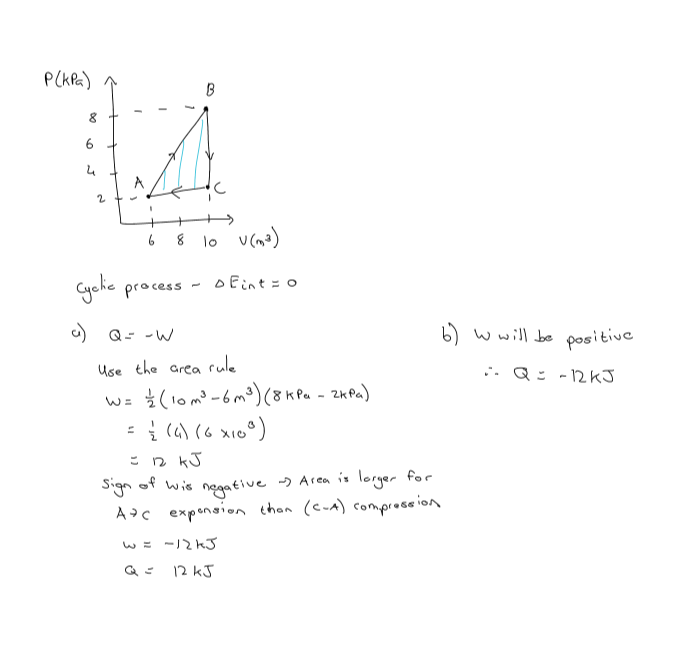 P(kPa)
B
8
6
4
A
C
2
6 8 10 V(m³)
Cyclic process - ΔEint = 0
a) Q = -W
Use the area rule
W = ½(10m³-6m³)(8kPa - 2kPa)
= ½ (4)(6 x10³)
= 12 kJ
Sign of W is negative → Area is larger for
A→C expension than (C-A) compression
W = -12kJ
Q = 12 kJ
b) W will be positive
∴ Q = -12kJ